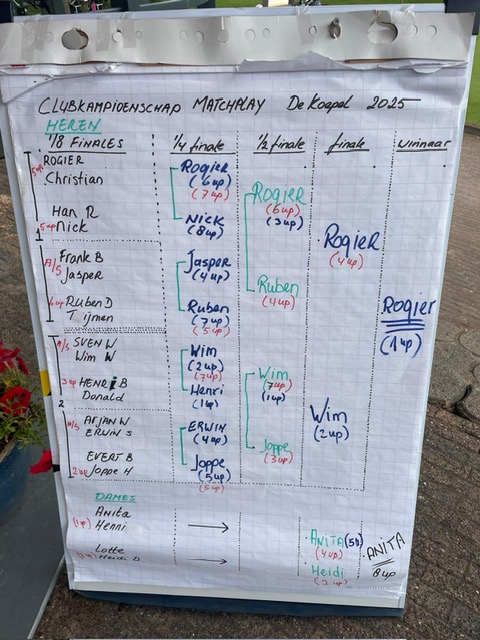 CLUBKAMPIOENSCHAP MATCHPLAY De Koepel 2025
HEREN
1/8 FINALES
ROGIER
Christian
Han R
5up Nick
Frank B
A/S Jasper
6up Ruben D
Tijmen
A/S SVEN W
Wim W
3up HENRI B
Donald
A/S ARJAN W
ERWIN S
EVERT B
2up Joppe H
1/4 finale
Rogier
(6up)
(7up)
Nick
(8up)
Jasper
(4up)
Ruben
(7up)
(5up)
Wim
(2up)
(7up)
Henri
(1up)
ERWIN
(4up)
Joppe
(5up)
(5up)
1/2 finale
Rogier
(6up)
(3up)
Ruben
(4up)
Wim
(7up)
(1up)
Joppe
(3up)
finale
Rogier
(4up)
Wim
(2up)
winnaar
Rogier
(1up)
DAMES
Anita
Henni
→
ANITA
(4up)
ANITA
8up
Lotte
Heidi D
→
Heidi